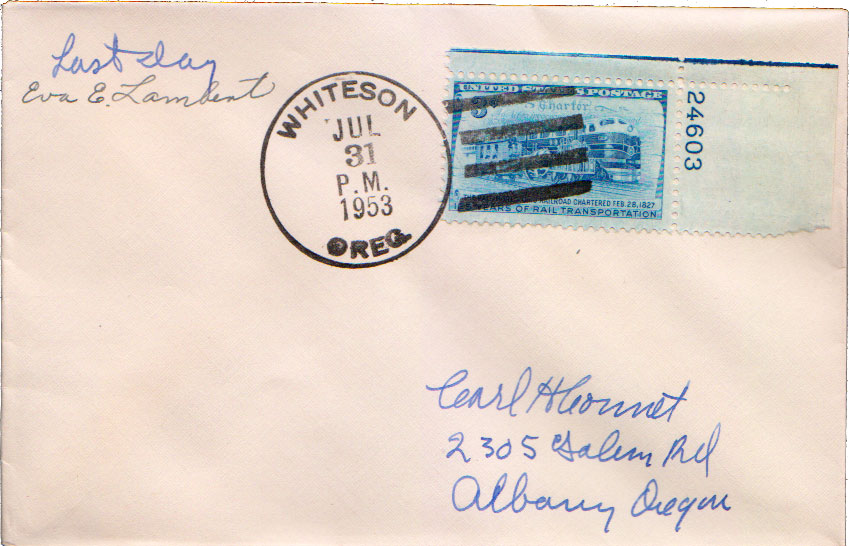 Last day
Eva E. Lambert
WHITESON
JUL
31
P.M.
1953
OREG.
UNITED STATES POSTAGE
3¢
Charter
RAILROAD CHARTERED FEB. 28, 1827
YEARS OF RAIL TRANSPORTATION
24603
Carl H Connet
2305 Salem Rd
Albany Oregon